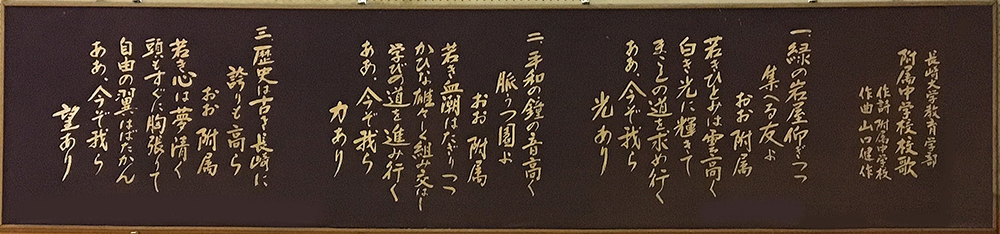 長崎大学教育学部
附属中学校校歌
作詩 附属中学校
作曲 山口健作
一 緑の岩屋仰ぎつつ
集へる友よ
おお 附属
若きひとみは雲高く
白き光に輝きて
まことの道を求め行く
ああ、今ぞ我ら
光あり
二 平和の鐘の音高く
脈うつ園よ
おお 附属
若き血潮はたぎりつつ
かひな雄々しく組み交はし
学びの道を進み行く
ああ、今ぞ我ら
力あり
三 歴史は古き長崎に
誇りも高ら
おお 附属
若き心は夢清く
頭もすぐに胸張りて
自由の翼はばたかん
ああ、今ぞ我ら
望あり